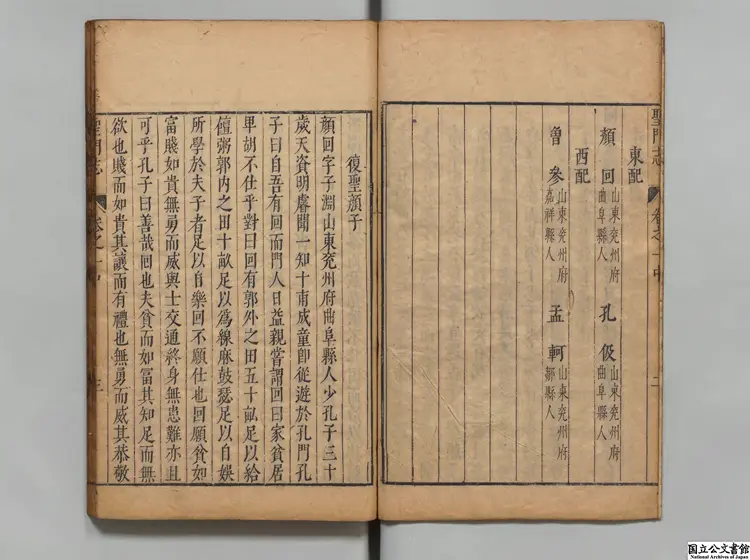 聖門志 卷之一中 二
東配
顏回 山東兖州府
曲阜縣人
孔伋 山東兖州府
曲阜縣人
西配
曾參 山東兖州府
嘉祥縣人
孟軻 山東兖州府
鄒縣人
復聖顏子
顏回字子淵山東兖州府曲阜縣人少孔子三十
歲天資明睿聞一知十甫成童卽從遊於孔門孔
子曰自吾有回而門人日益親嘗謂回曰家貧居
卑胡不仕乎對曰回有郭外之田五十畝足以給
饘粥郭內之田十畝足以爲絲麻鼓瑟足以自娛
所學於夫子者足以自樂回不願仕也回願貧如
富賤如貴無勇而威與士交通終身無患難亦且
可乎孔子曰善哉回也夫貧而如富其知足而無
欲也賤而如貴其讓而有禮也無勇而威其恭敬
聖門志 卷之一中 三
国立公文書館
National Archives of Japan